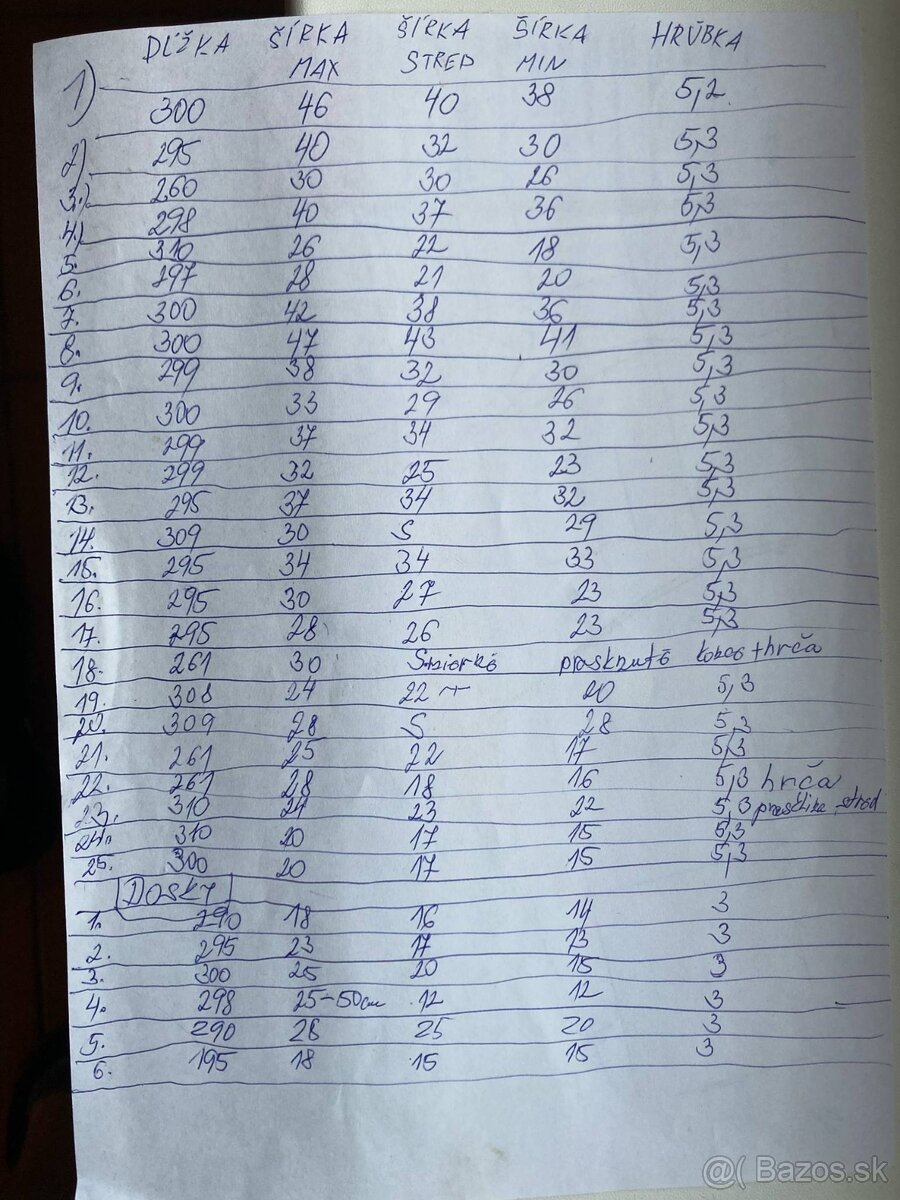 DĹŽKA ŠÍRKA MAX ŠÍRKA STRED ŠÍRKA MIN HRÚBKA
1) 300 46 40 38 5,2
2) 295 40 32 30 5,3
3.) 260 30 30 26 5,3
4.) 298 40 37 36 5,3
5. 310 26 22 18 5,3
6. 297 28 21 20 5,3
7. 300 42 38 36 5,3
8. 300 47 43 41 5,3
9. 299 38 32 30 5,3
10. 300 33 29 26 5,3
11. 299 37 34 32 5,3
12. 299 32 25 23 5,3
13. 295 37 34 32 5,3
14. 309 30 S 29 5,3
15. 295 34 34 33 5,3
16. 295 30 27 23 5,3
17. 295 28 26 23 5,3
18. 261 30 prasknuté + hrča
19. 308 24 22 20 5,3
20. 309 28 S 28 5,3
21. 261 25 22 17 5,3
22. 261 28 18 16 5,3 hrča
23. 310 24 23 22 5,3 stred
24. 310 20 17 15 5,3
25. 300 20 17 15 5,3
DOSKY
1. 290 18 16 14 3
2. 295 23 17 13 3
3. 300 25 20 15 3
4. 298 25-50cm 12 12 3
5. 290 28 25 20 3
6. 195 18 15 15 3
@( Bazos.sk